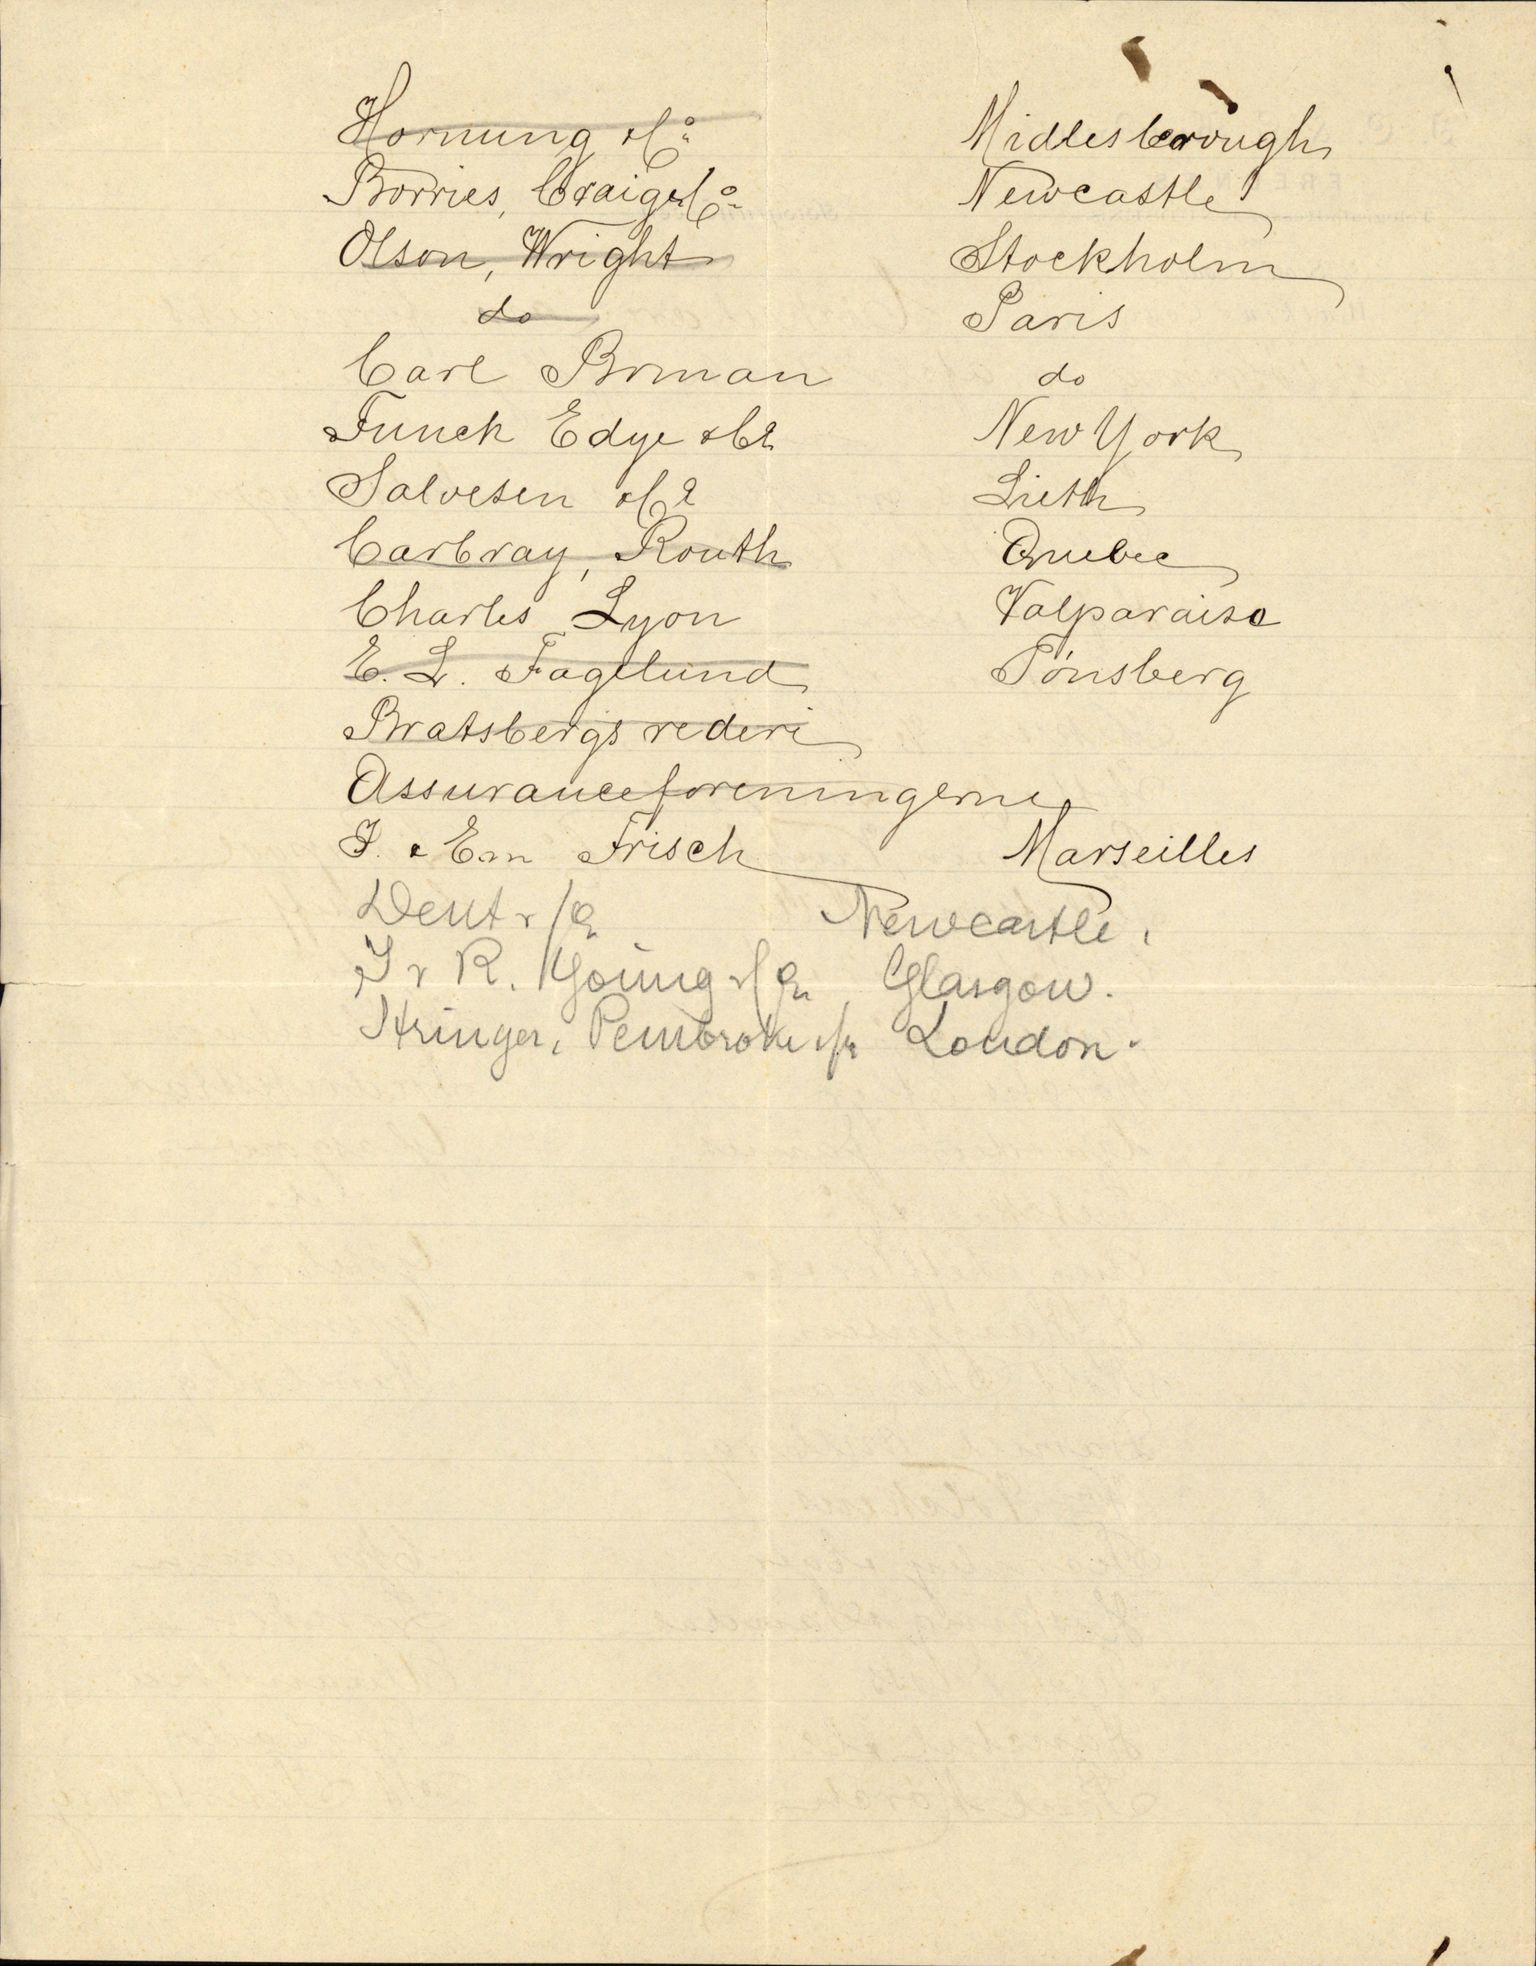 Hornung & Co Midlesborough
Borries, Craig & Co Newcastle
Olson, Wright Stockholm
do Paris
Carl Brman do
Funch Edye & Co New York
Salvesen & Co Lieth
Carbray, Routh Quebec
Charles Lyon Valparaiso
E. L. Fagelund Tönsberg
Bratsbergs rederi
Assuranceforeningerne
J. & Em Frisch Marseilles
Dent & Co Newcastle.
J & R. Young & Co, Glasgow.
Stringer, Pembroke & Co London.